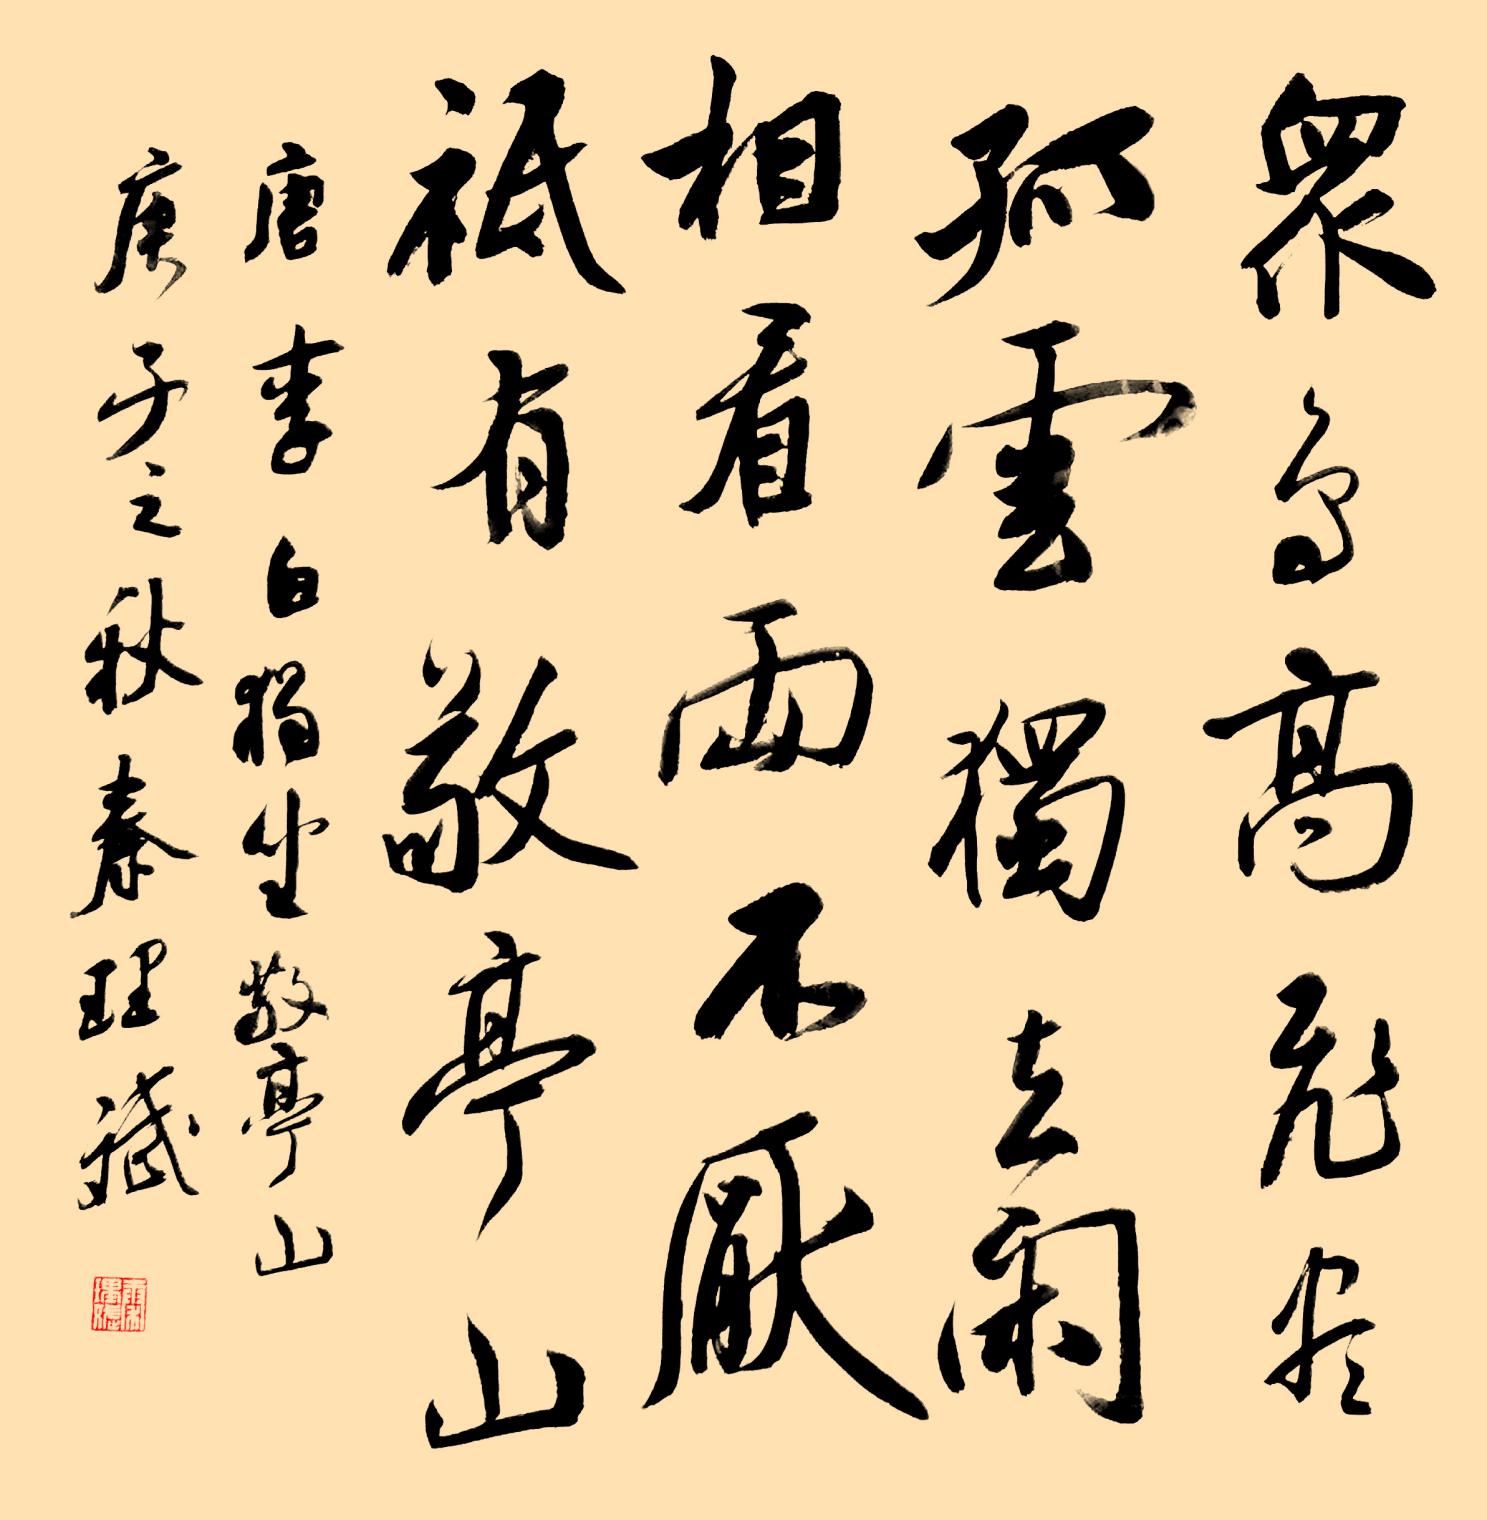 眾鳥高飛盡
孤雲獨去閑
相看兩不厭
祇有敬亭山
唐李白獨坐敬亭山
庚子之秋秦理斌